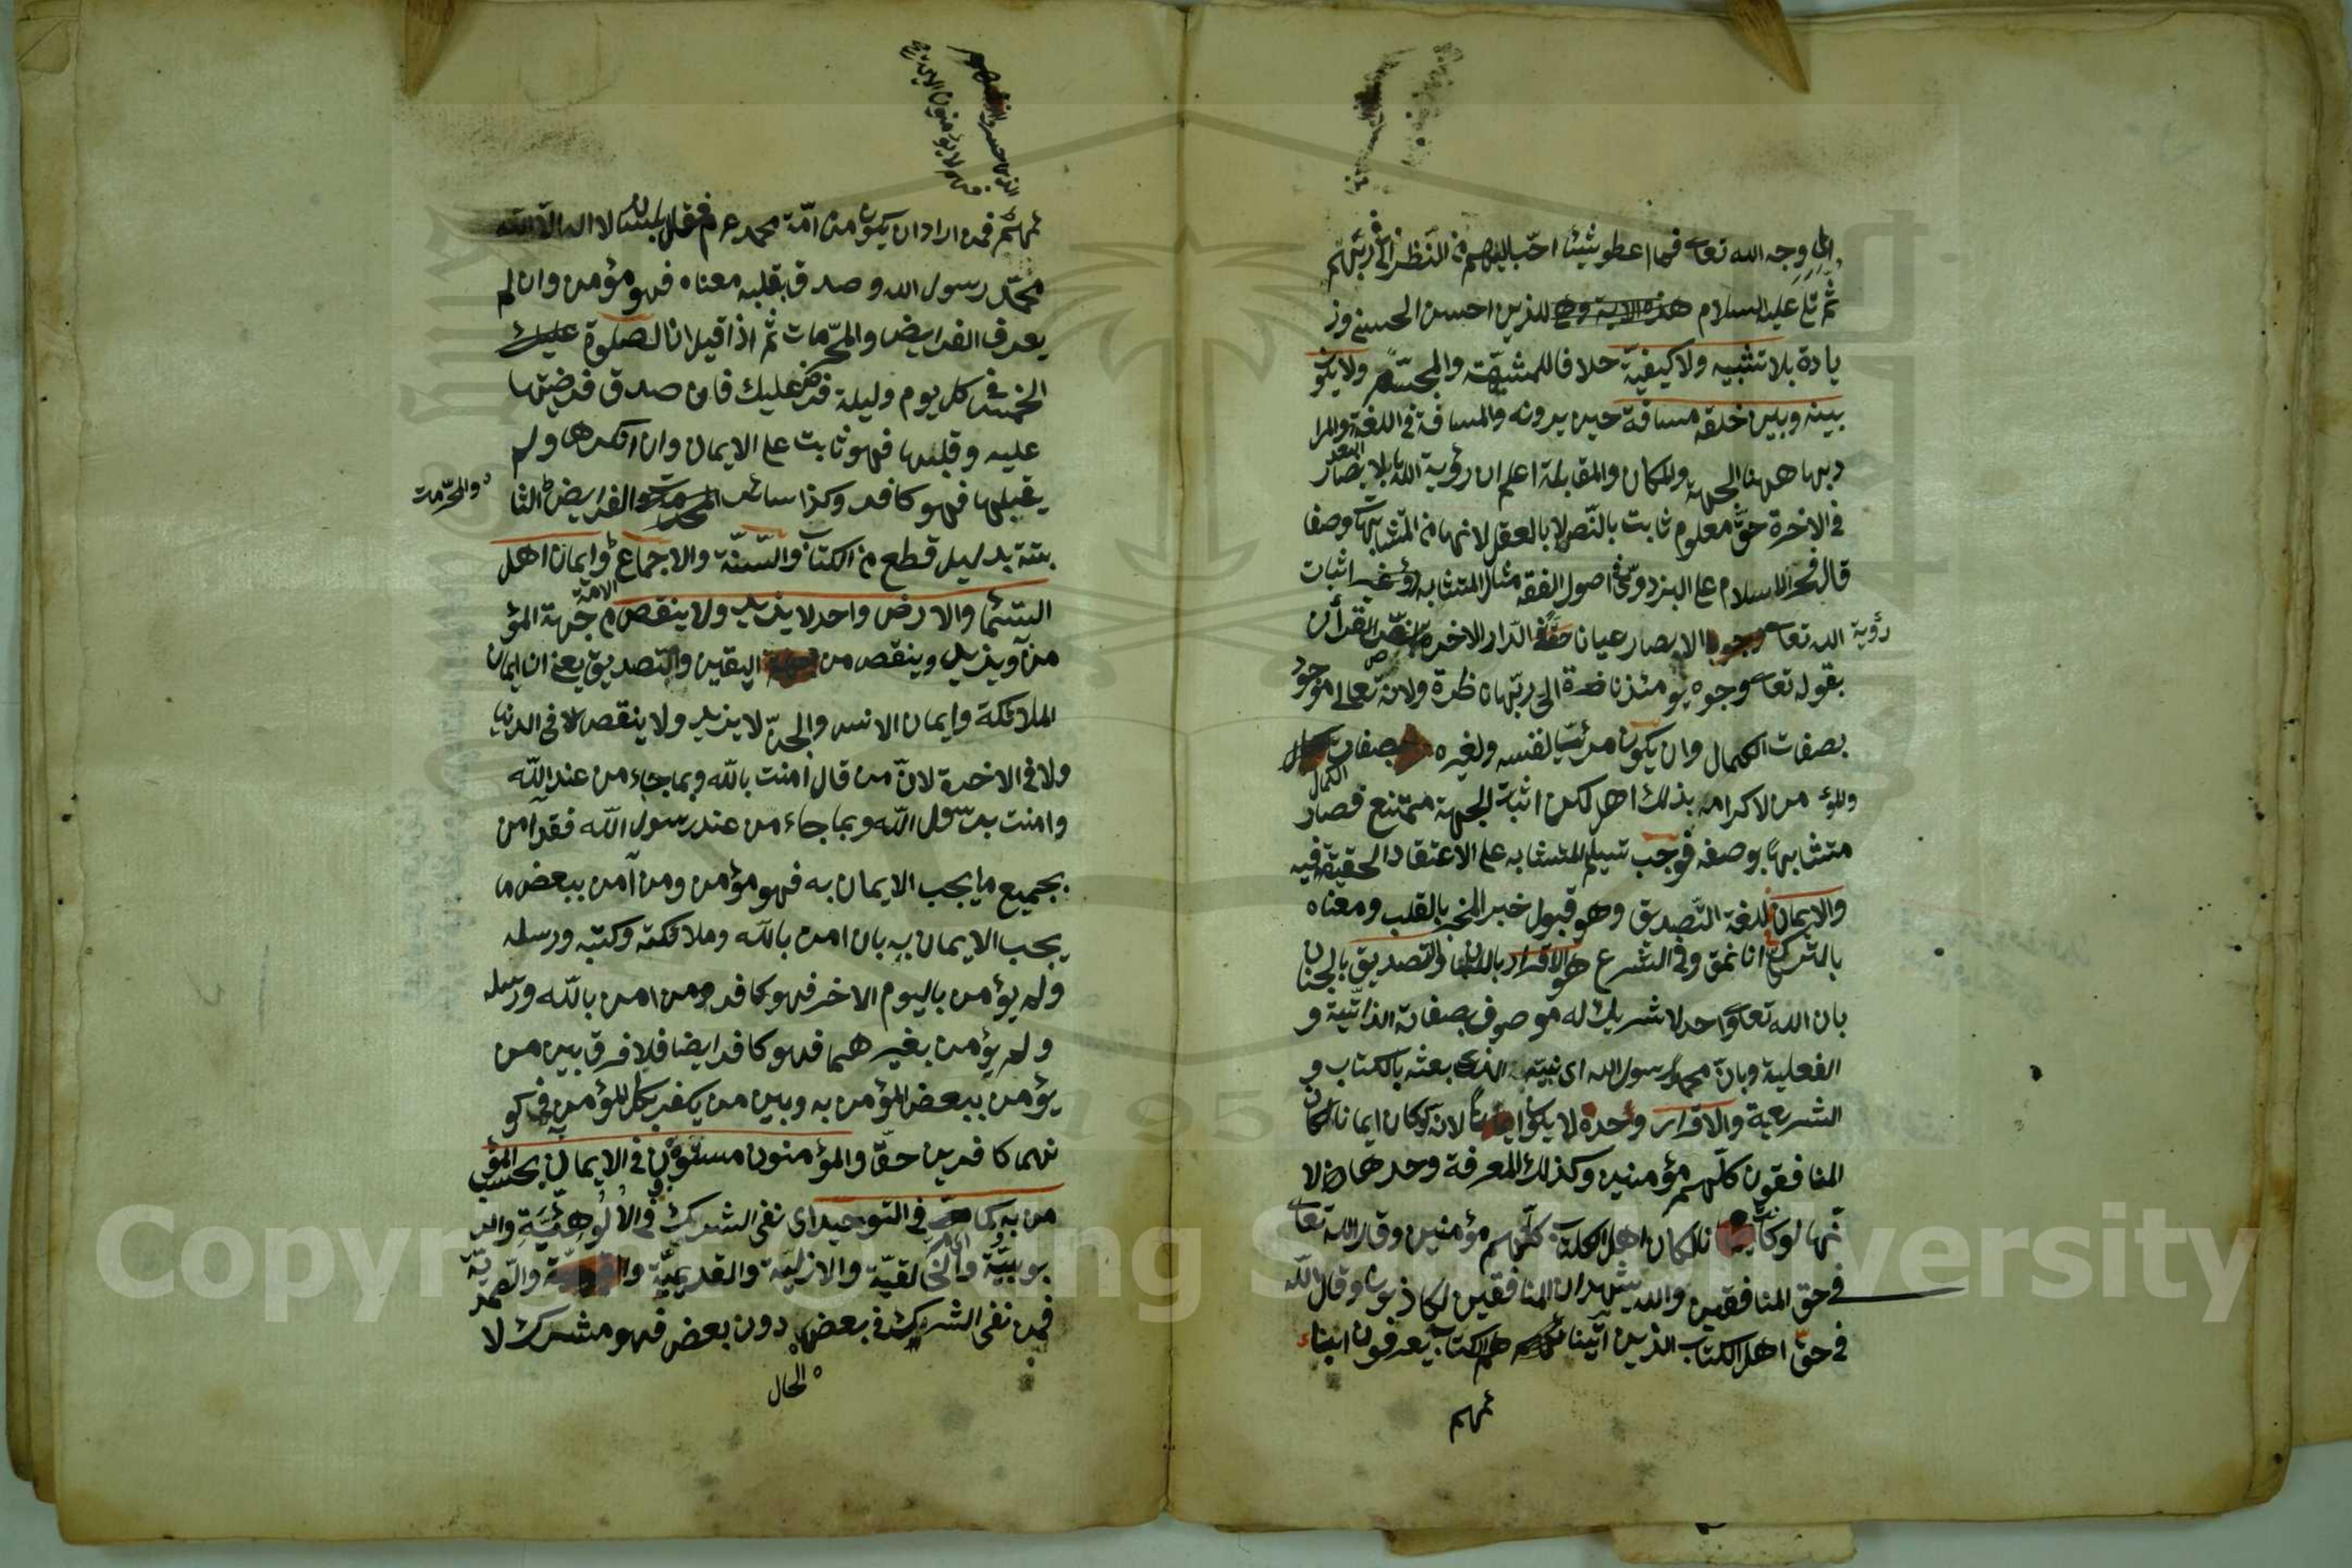 الى وجه الله تعالى فما اعطو شيئا احبّ اليهم من النّظر الى ربّهم
ثم تلا عليه السلام هذه الاية وهى للذين احسن الحسنى وز
يادة بلا تشبيه ولا كيفيّة خلافا للمشبّهة والمجسّمة ولا يكو
بينه وبين خلقه مسافة حين يرونه والمسافة فى اللغة البعد والمرا
د بها ههنا الجهة والمكان والمقابلة اعلم ان رؤية الله بالابصار
فى الاخرة حقّ معلوم ثابت بالنّص لا بالعقل لانها من المتشابهات وصفا
قال فخر الاسلام على البزدوىّ فى اصول الفقه مثال المتشابه اثبات
رؤية الله تعالى الابصار عيانا حقّا فى الدّار الاخرة بنصّ القرأن
بقوله تعالى وجوه يومئذ ناضرة الى ربّها ناظرة ولانّه تعالى موجود
بصفات الكمال وان يكون مرئيّا لنفسه ولغيره من صفات الكمال
والمؤمن لاكرامه بذلك اهل لكن اثبات الجهة ممتنع فصار
متشابها بوصفه فوجب تسليم المتشابه على الاعتقاد الحقيقة فيه
والايمان فى اللغة التّصديق وهو قبول خبر المخبر بالقلب ومعناه
بالتركى انانمق وفى الشرع هو الاقرار باللسان والتصديق بالجنان
بان الله تعالى واحد لا شريك له موصوف بصفاته الذاتيّة و
الفعلية وبانّ محمدا رسول الله اى نبيّه الذى بعثه بالكتاب و
الشريعة والاقرار وحده لا يكون ايمانا لانّه لوكان ايمانا لكان
المنافقون كلّهم مؤمنين وكذلك المعرفة وحدها لا
نّها لو كانت ايمانا لكان اهل الكتاب كلّهم مؤمنين وقال الله تعالى
فى حق المنافقين والله يشهد ان المنافقين لكاذبون وقال الله
فى حقّ اهل الكتاب الذين آتيناهم الكتاب يعرفون ابناء
ئهم
ئهم فمن اراد ان يكون من امّة محمد عم فقال بلسانه لا اله الّا الله
محمّد رسول الله وصدق بقلبه معناه فهو مؤمن وان لم
يعرف الفرايض والمحّرمات ثم اذا قيل انّ الصلوة عليك
الخمس فى كل يوم وليلة فرض عليك فان صدق فرضيتها
عليه وقبلها فهو ثابت على الايمان وان انكرها ولم
يقبلها فهو كافر وكذا سائر الفرايض الثا
والمحرّمات
بتة بدليل قطع من الكتاب والسّنّة والاجماع وايمان اهل
السّماء والارض واحد لا يزيد ولا ينقص من جهة المؤ
من به ويزيد وينقص من اليقين والتّصديق يعنى ان ايمان
الملائكة وايمان الانس والجنّ لا يزيد ولا ينقص لا فى الدنيا
ولا فى الاخرة لانّ من قال آمنت باللّه وبما جاء من عند اللّه
وامنت برسول اللّه وبما جاء من عند رسول اللّه فقد آمن
بجميع ما يجب الايمان به فهو مؤمن ومن آمن ببعض ما
يجب الايمان به بان امن باللّه وملائكته وكتبه ورسله
ولم يؤمن باليوم الاخر فهو كافر ومن امن باللّه ورسله
ولم يؤمن بغيرهما فهو كافر ايضا فلا فرق بين من
يؤمن ببعض المؤمن به وبين من يكفر بكل المؤمن به فى كو
نهما كافرين حقّا والمؤمنون مستوون فى الايمان بحسب المؤ
من به كما فى التوحيد اى نفى الشرك فى الالوهيّة والر
بوبيّة والخالقيّة والازليّة والقديميّة والصّمديّة
فمن نفى الشرك فى بعض دون بعض فهو مشرك لا
الحال
Copyright © King Saud University
195